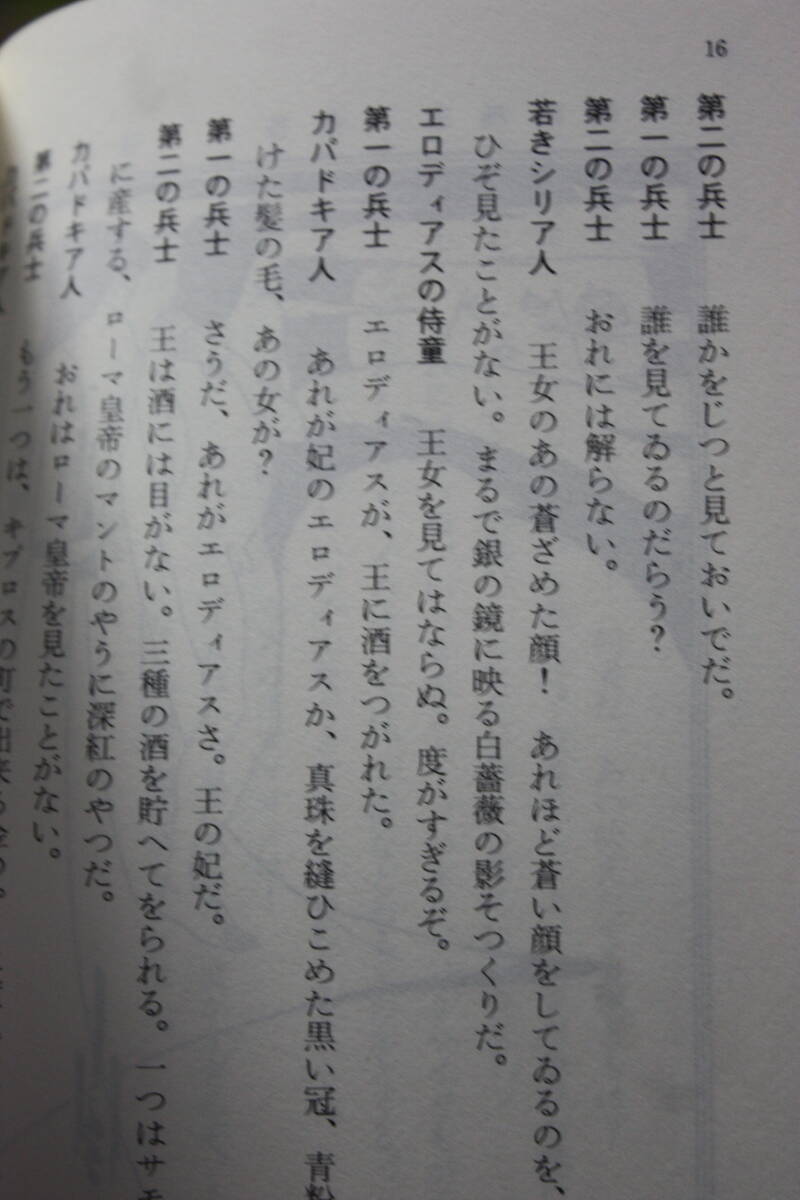 16
第二の兵士　誰かをじつと見ておいでだ。
第一の兵士　誰を見てゐるのだらう？
第二の兵士　おれには解らない。
若きシリア人　王女のあの蒼ざめた顔！　あれほど蒼い顔をしてゐるのを、
ひぞ見たことがない。まるで銀の鏡に映る白薔薇の影そつくりだ。
エロディアスの侍童　王女を見てはならぬ。度がすぎるぞ。
第一の兵士　エロディアスが、王に酒をつがれた。
カパドキア人　あれが妃のエロディアスか、真珠を縫ひこめた黒い冠、青粉
けた髪の毛、あの女が？
第一の兵士　さうだ、あれがエロディアスさ。王の妃だ。
第二の兵士　王は酒には目がない。三種の酒を貯へてをられる。一つはサモ
に産する、ローマ皇帝のマントのやうに深紅のやつだ。
カパドキア人　おれはローマ皇帝を見たことがない。
第二の兵士　もう一つは、キプロスの町で出来る金の